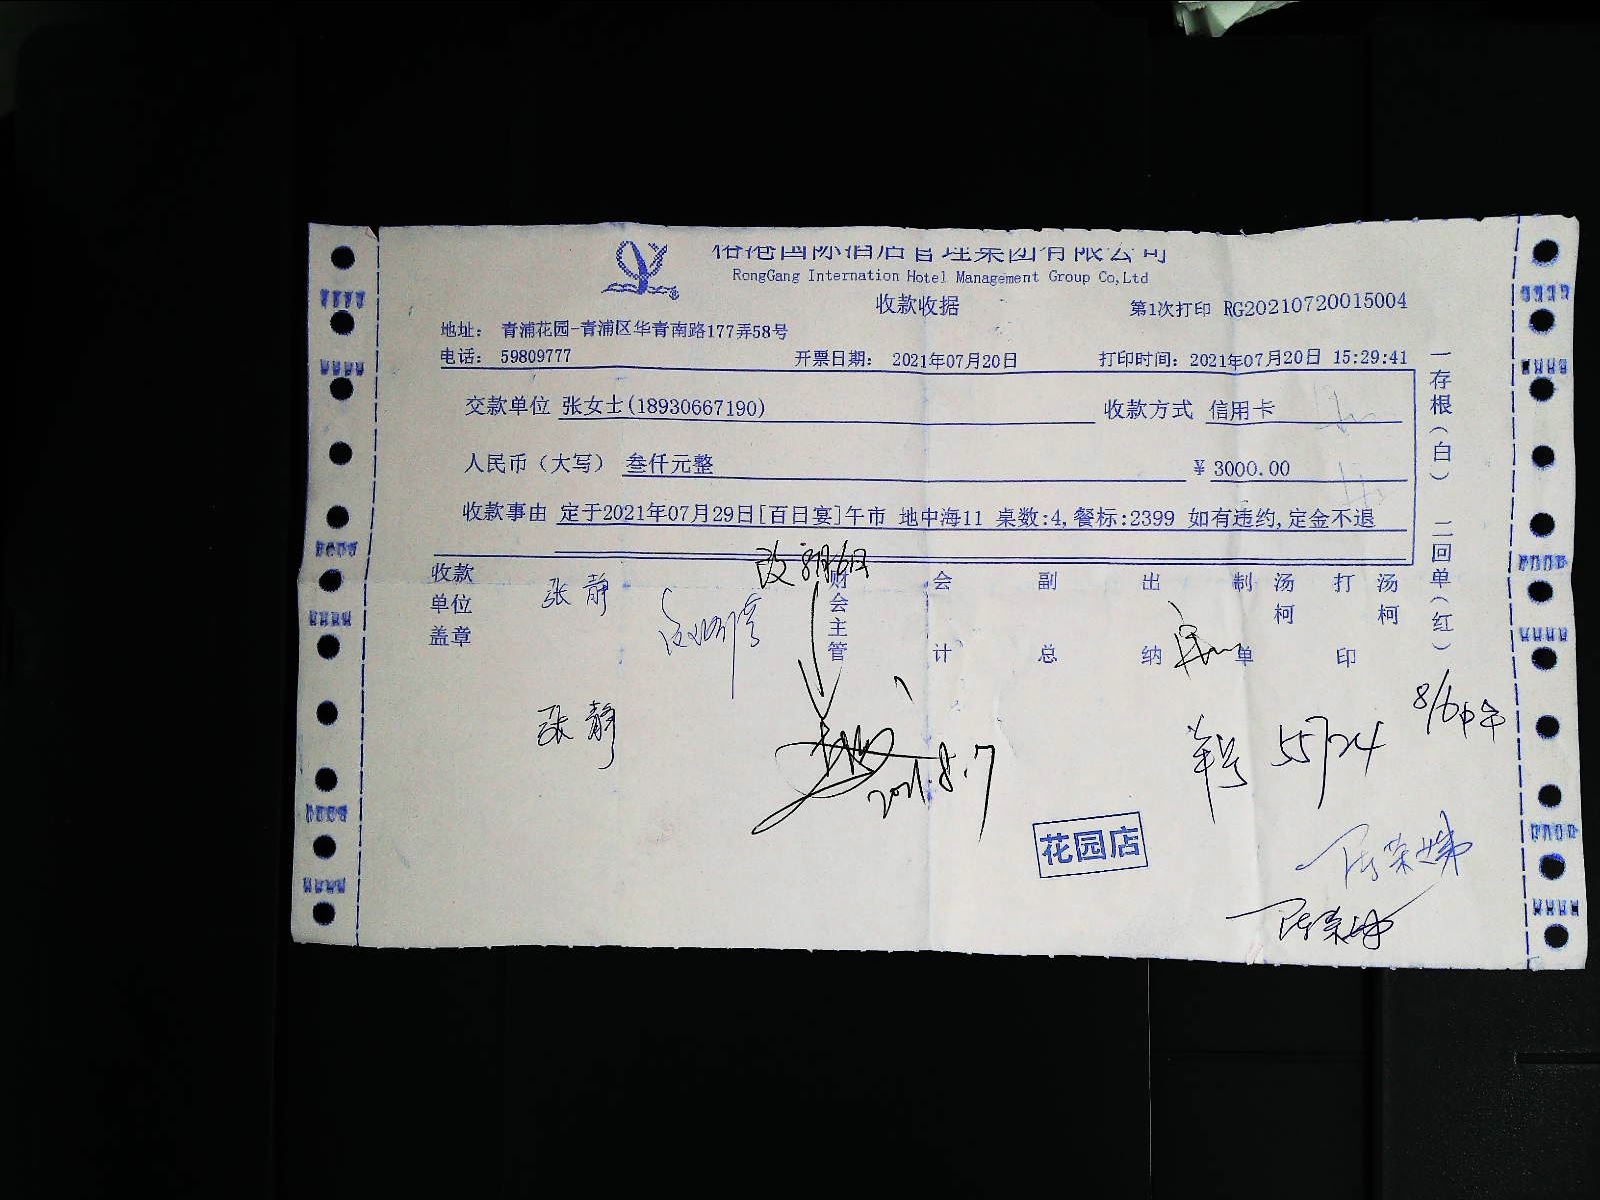 榕港国际酒店管理集团有限公司
RongGang Internation Hotel Management Group Co,Ltd
收款收据
第1次打印 RG20210720015004
地址： 青浦花园-青浦区华青南路177弄58号
电话： 59809777 开票日期： 2021年07月20日 打印时间：2021年07月20日 15:29:41
交款单位 张女士(18930667190) 收款方式 信用卡
人民币（大写） 叁仟元整 ￥3000.00
收款事由 定于2021年07月29日[百日宴]午市 地中海11 桌数:4,餐标:2399 如有违约,定金不退
一存根（白） 二回单（红）
改8月6日
收款单位盖章 张静 财会主管 会计 副总 出纳 制单 汤柯 打印 汤柯
张静
2021.8.7
单号 55724
8/6中午
花园店
陈荣娣
陈荣娣